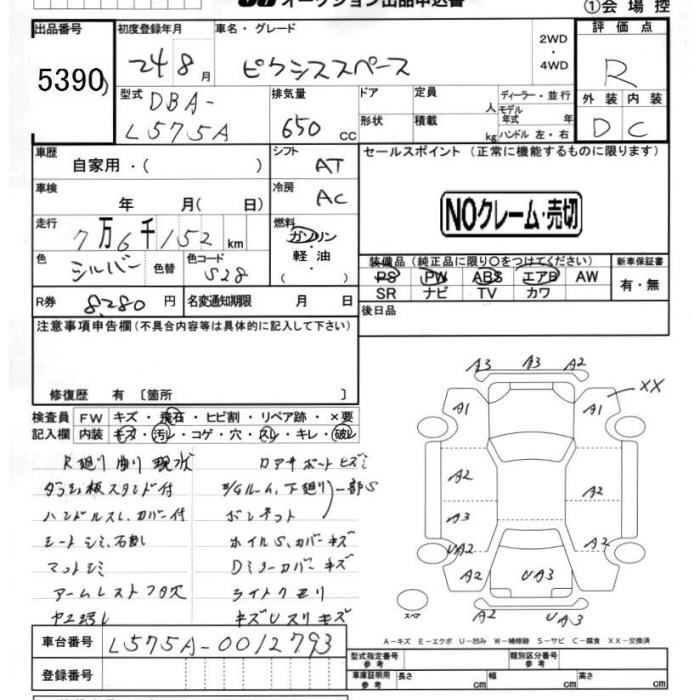 オークション出品申込書
①会場控
出品番号
5390
初度登録年月
24 8月
車名・グレード
ピクシススペース
2WD・4WD
評価点
R
外装 内装
D C
型式
DBA-L575A
排気量
650 cc
ドア
形状
定員 人
積載 kg
ディーラー・並行
モデル年式 年
ハンドル 左・右
車歴
自家用・( )
シフト
AT
セールスポイント (正常に機能するものに限ります)
NOクレーム・売切
車検
年 月( 日)
冷房
AC
走行
7万6千152 km
燃料
ガソリン・軽油・( )
色
シルバー
色替
色コード
S28
装備品 (純正品に限り○をつけてください)
PS PW ABS エアB AW
SR ナビ TV カワ
新車保証書
有・無
R券
8,280円
名変通知期限 月 日
後日品
注意事項申告欄 (不具合内容等は具体的に記入して下さい)
修復歴 有 〔箇所 〕
検査員記入欄
FW キズ・飛石・ヒビ割・リペア跡・×要
内装 キズ・汚レ・コゲ・穴・スレ・キレ・破レ
R廻り 曲り 現状
ロアサポートヒズミ
ダッシュ板スタンド付
E/Gルーム、下廻り 一部S
ハンドルスレ、カバー付
ボンネット
シートシミ、右破レ
ホイルS、カバーキズ
マットシミ
Dミラーカバーキズ
アームレストフタ欠
ライトクモリ
キズUスリキズ
A3 A3 A2
XX
A1 A1
A2 A2
A3
UA2 A2
A2 UA3 A2
A2 UA3
スペア
A-キズ E-エクボ U-凹み W-補修跡 S-サビ C-腐食 XX-交換済
車台番号
L575A-0012793
登録番号
型式指定番号 参考
類別区分番号 参考
車庫証明用 参考
長さ cm
幅 cm
高さ cm